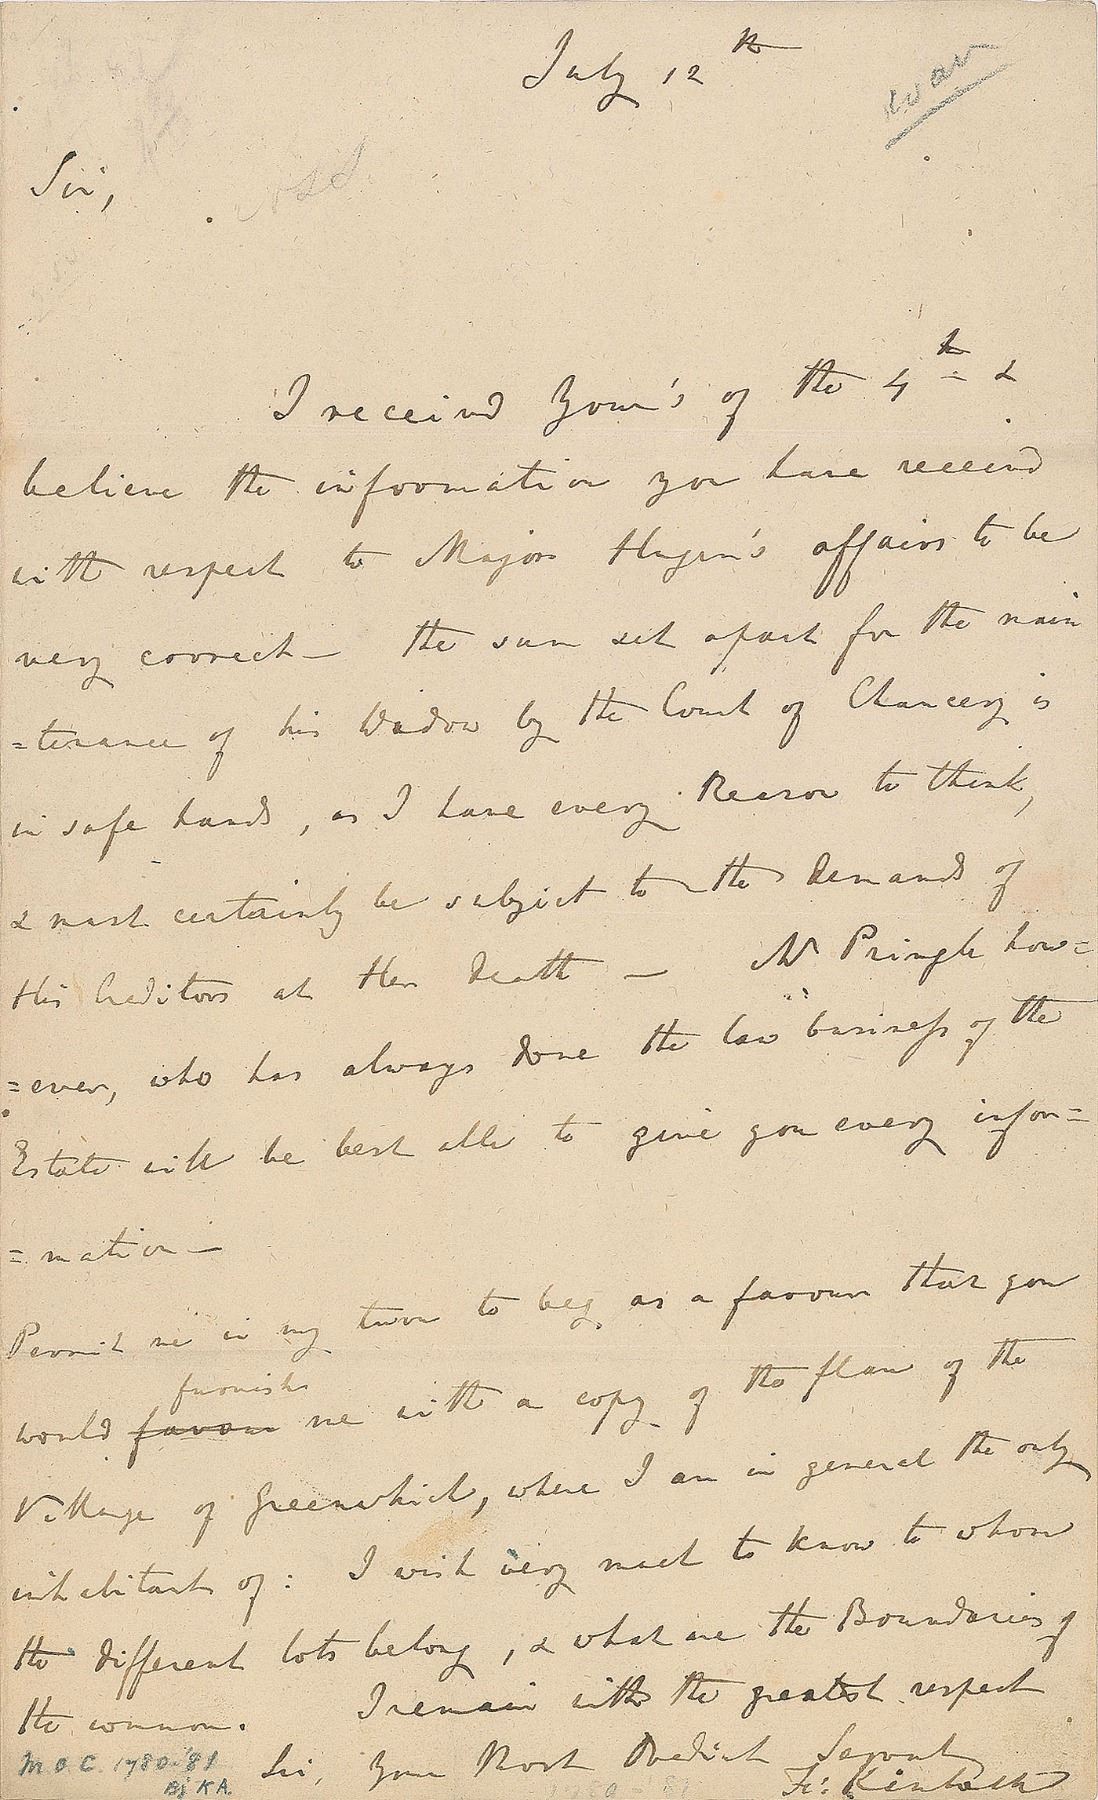 July 12th
Sir,
I receivd Your's of the 4th &
believe the information you have receivd
with respect to Major Huger's affairs to be
very correct — the sum set apart for the main
=tenance of his Widow by the Court of Chancery is
in safe hands, as I have every Reason to think,
& must certainly be subject to the Demands of
His Creditors at Her Death — Mr Pringle how=
=ever, who has always done the law business of the
Estate will be best able to give you every infor=
=mation —
Permit me in my turn to beg as a favour that you
furnish
would favour me with a copy of the plan of the
Village of Greenwhich, where I am in general the only
inhabitant of: I wish very much to know to whom
the different lots belong, & what are the Boundaries of
the common. I remain with the greatest respect
Sir, Your Most Obedient Servant
Fr: Kinloch
M.O.C. 1780-'81